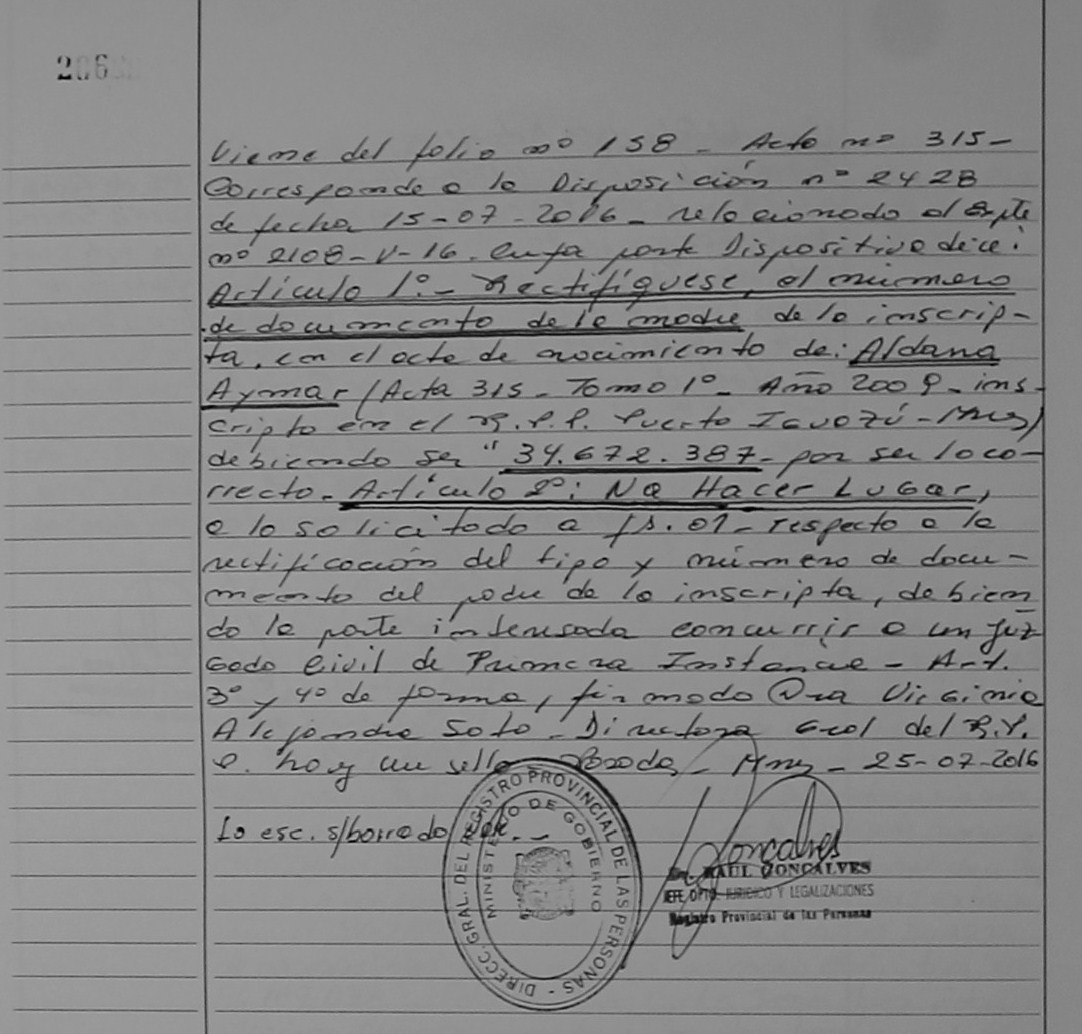 206
Viene del folio nº 158 - Acta nº 315-
Corresponde a la Disposición nº 2428
de fecha 15-07-2016- relacionado al Expte
nº 2108-V-16. cuya parte Dispositiva dice:
Artículo 1º.- Rectifíquese, el número
de documento de la madre de la inscrip-
ta, en el acta de nacimiento de: Aldana
Aymar (Acta 315- Tomo 1º- Año 2009- ins-
cripta en el R.P.P. Puerto Iguazú-Mnes)
debiendo ser "34.672.387- por ser lo co-
rrecto- Artículo 2º: No Hacer Lugar,
a lo solicitado a fs. 01- respecto a la
rectificación del tipo y número de docu-
mento del padre de la inscripta, debien
do la parte interesada concurrir a un Juz
gado Civil de Primera Instancia- Art.
3º y 4º de forma, firmado Dra Virginia
Alejandra Soto- Directora Gral del R.P.
P. hay un sello- Posadas- Mnes- 25-07-2016
Lo esc. s/borrado
DIRECC. GRAL. DEL REGISTRO PROVINCIAL DE LAS PERSONAS -
MINISTERIO DE GOBIERNO
Goncalves
RAUL GONCALVES
JEFE DPTO. JURIDICO Y LEGALIZACIONES
Registro Provincial de las Personas